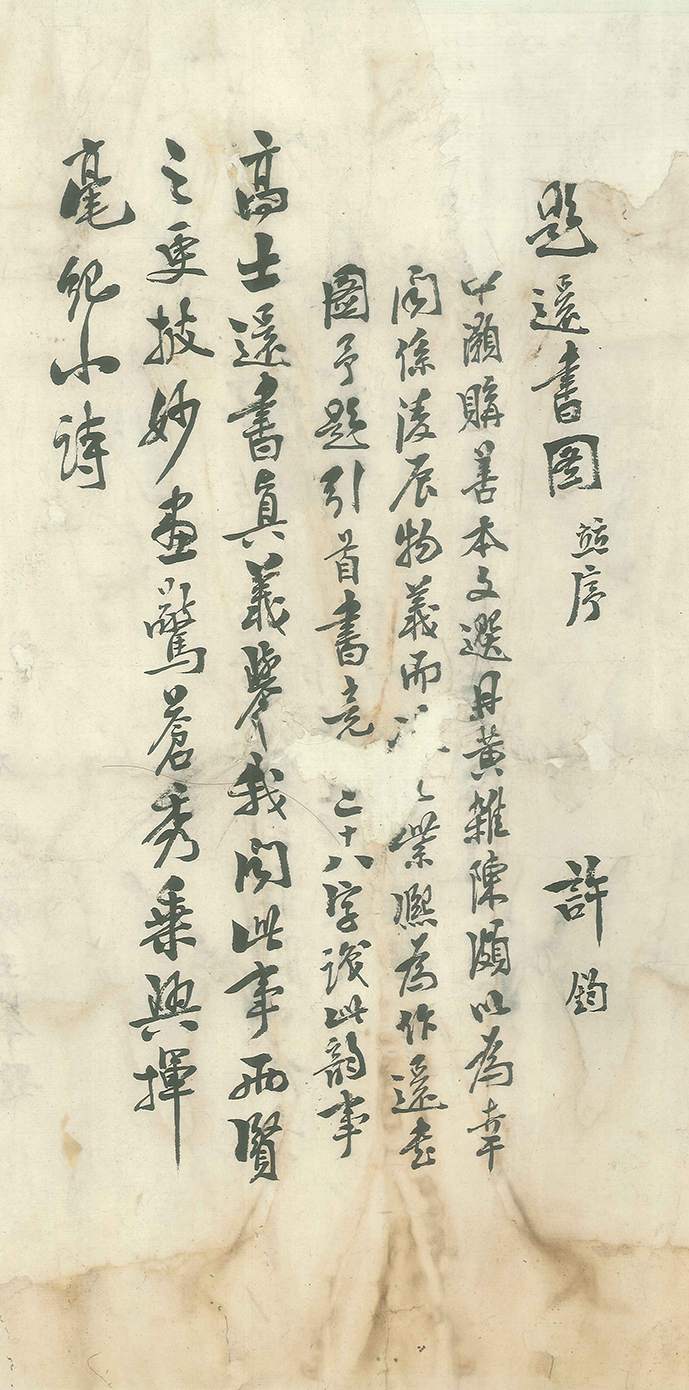 題還書圖 並序 許鈞
中灝購善本文選丹黃雜陳頗以為幸
閱係淩辰物義而業熙為作還書
圖予題引首書竟二十八字識此韻事
高士還書真義舉我聞此事兩賢
之更披妙畫驚蒼秀乘興揮
毫紀小詩